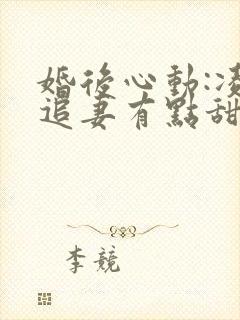 婚後心動:
追妻有點甜
李競